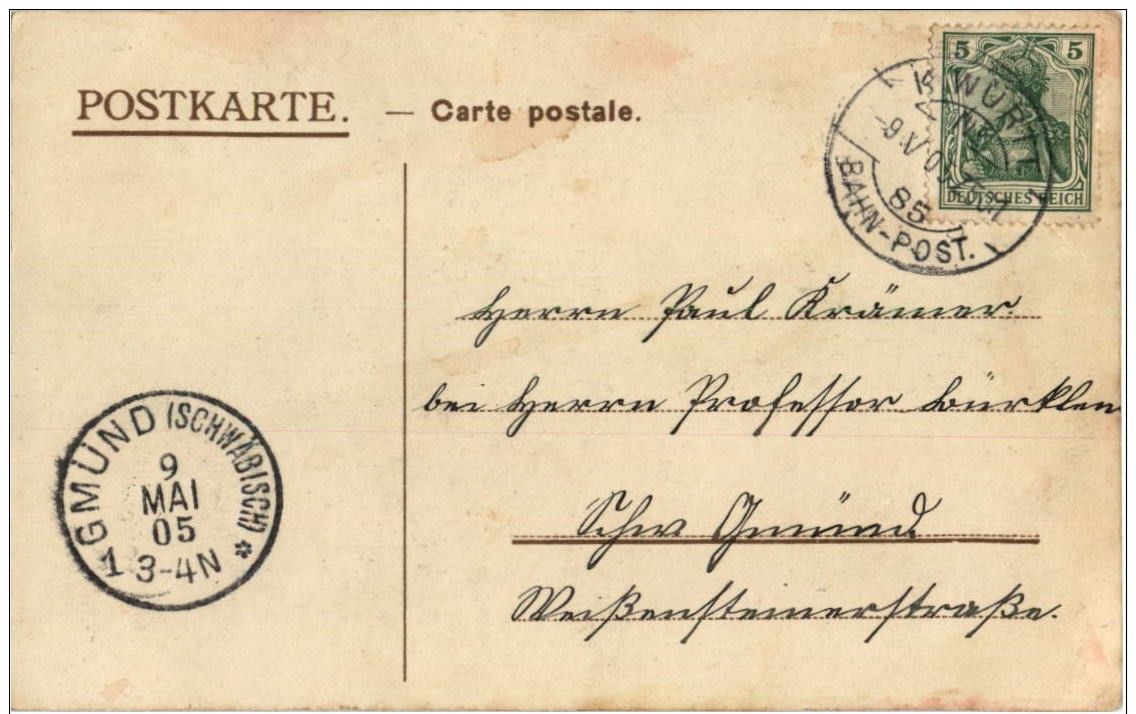 POSTKARTE. — Carte postale.
5 5
DEUTSCHES REICH
K. WÜRTT.
BAHN-POST.
9 V 05
85
Herrn Paul Krämer.
bei Herrn Professor Bürklen
Schw Gmünd.
Weißensteinerstraße.
GMÜND (SCHWÄBISCH)
9
MAI
05
1 3-4N *